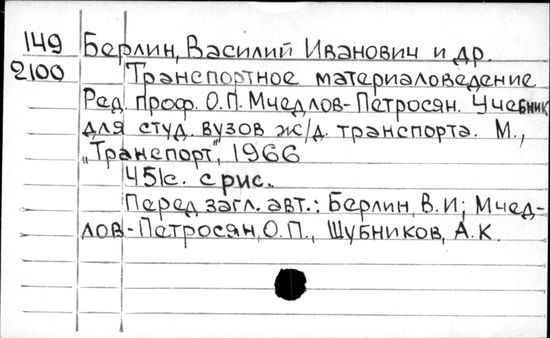 149 Берлин, Василий Иванович и др.
2100 Транспортное материаловедение
Ред. проф. О.П. Мчедлов-Петросян. Учебник
для студ. вузов ж/д. транспорта. М.,
„Транспорт", 1966
451с. с рис.
Перед загл. авт.: Берлин, В.И; Мчед-
лов-Петросян, О.П., Шубников, А.К.